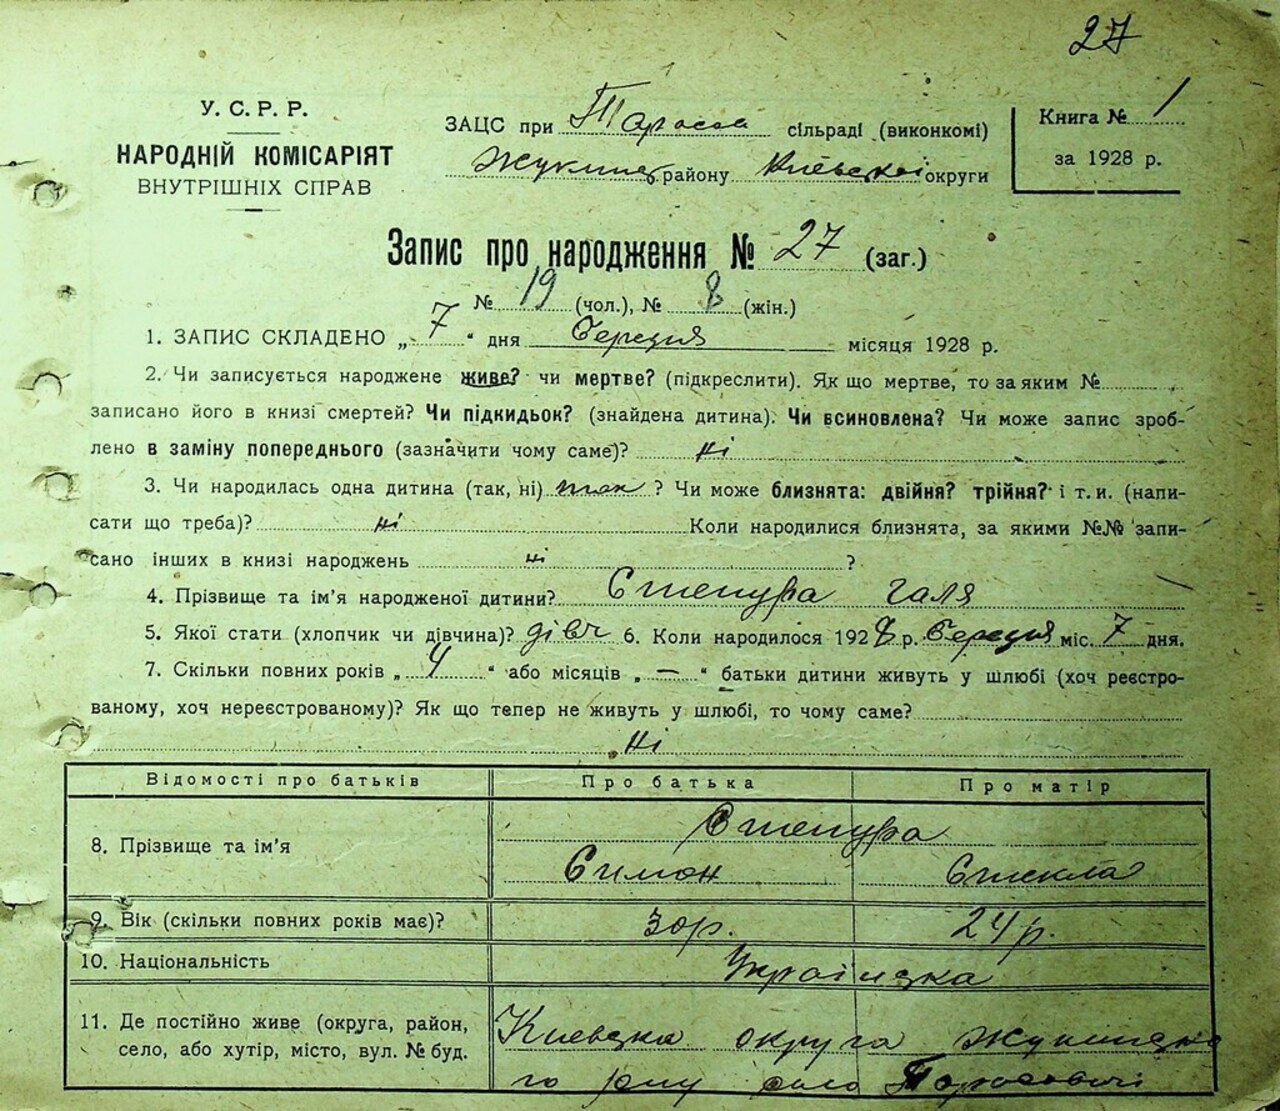 27
У. С. Р. Р.
НАРОДНІЙ КОМІСАРІЯТ
ВНУТРІШНІХ СПРАВ
ЗАЦС при Тарасов сільраді (виконкомі)
району Київської округи
Книга № 1
за 1928 р.
Запис про народження № 27 (заг.)
№ 19 (чол.), № 8 (жін.)
1. ЗАПИС СКЛАДЕНО „ 7 “ дня Березня місяця 1928 р.
2. Чи записується народжене живе? чи мертве? (підкреслити). Як що мертве, то за яким №
записано його в книзі смертей? Чи підкидьок? (знайдена дитина). Чи всиновлена? Чи може запис зроб-
лено в заміну попереднього (зазначити чому саме)? ні
3. Чи народилась одна дитина (так, ні) так ? Чи може близнята: двійня? трійня? і т. и. (напи-
сати що треба)? ні Коли народилися близнята, за якими №№ запи-
сано інших в книзі народжень ні ?
4. Прізвище та ім’я народженої дитини? Степура Галя
5. Якої стати (хлопчик чи дівчина)? дівч 6. Коли народилося 1928 р. Березня міс. 7 дня.
7. Скільки повних років „ 4 “ або місяців „ — “ батьки дитини живуть у шлюбі (хоч реєстро-
ваному, хоч нереєстрованому)? Як що тепер не живуть у шлюбі, то чому саме?
ні
Відомості про батьків Про батька Про матір
8. Прізвище та ім’я Степура
Симон
9. Вік (скільки повних років має)? 30р. 24р.
10. Національність Українска
11. Де постійно живе (округа, район,
село, або хутір, місто, вул. № буд.
Киевска округа
го р-ну село Тарасовичі